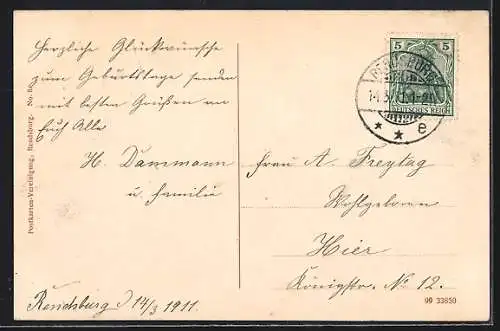 Herzliche Glückwünsche
zum Geburtstage senden
mit besten Grüßen an
Euch Alle
H. Dammann
u. Familie
Rendsburg 14/3 1911.
Postkarten-Vereinigung, Rendsburg. No.
5 5
DEUTSCHES REICH
RENDSBURG
14.3.11.1-2
* * e
Frau A. Freytag
Wohlgeboren
Hier
Königstr. No 12.
09 33850